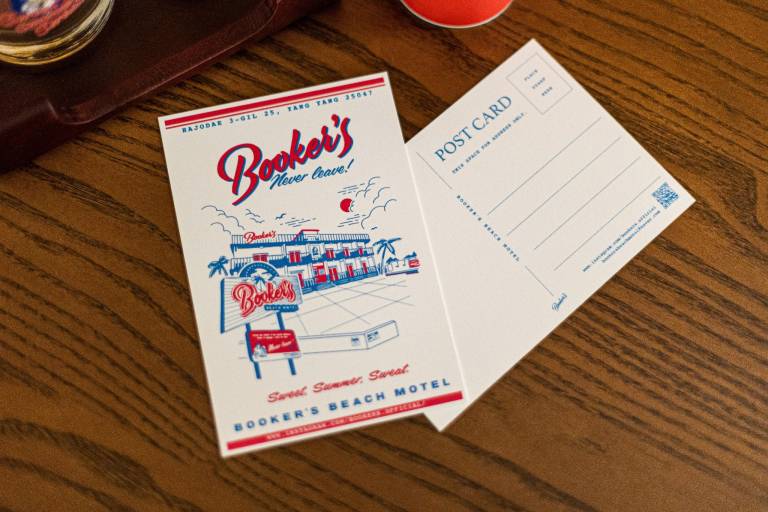 HAJODAE 3-GIL 25, YANG YANG 25047
Booker's
Never leave!
Booker's
Booker's
BEACH MOTEL
Never leave!
Sweet. Summer. Sweat.
BOOKER'S BEACH MOTEL
WWW.INSTAGRAM.COM/BOOKERS.OFFICIAL/
PLACE
STAMP
HERE
POST CARD
THIS SPACE FOR ADDRESS ONLY.
BOOKER'S BEACH MOTEL
Booker's